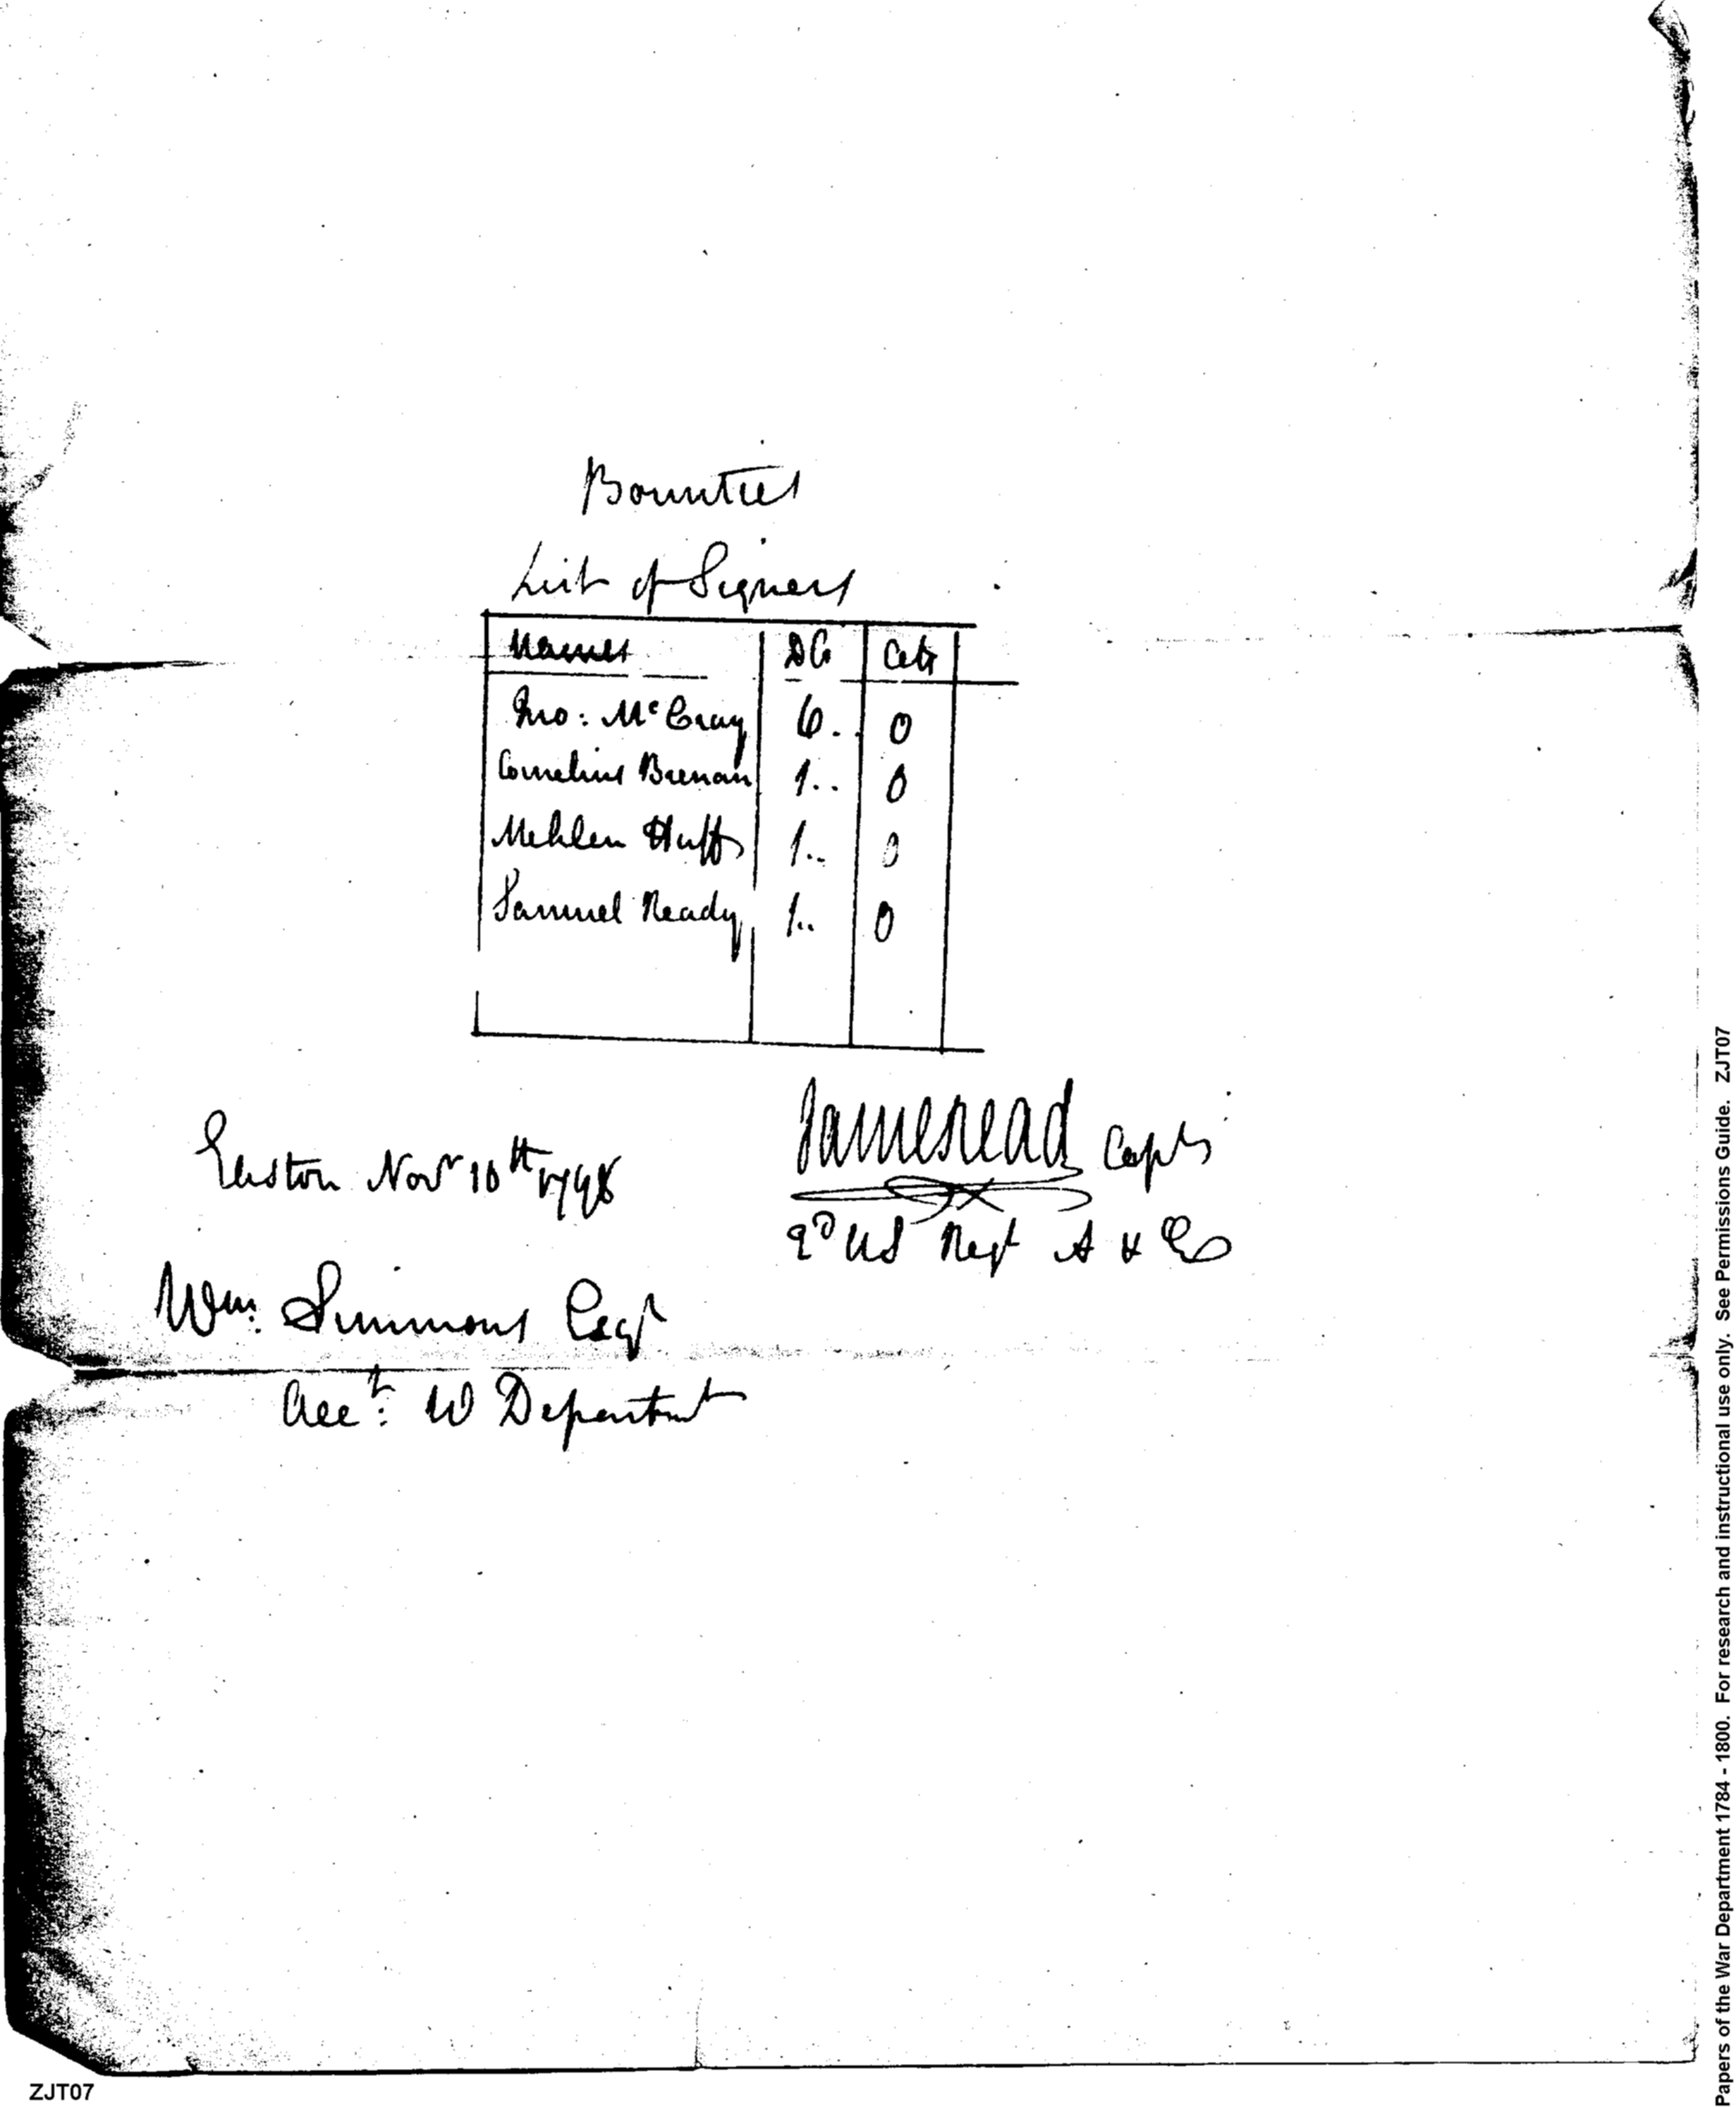 Bounties
List of Signers
Names Ds Cts
Jno: McCray 6.. 0
Cornelius Brenan 1.. 0
Mehlen Huff 1.. 0
Samuel Ready 1.. 0
James Read Capt
Easton Novr 10th 1798
2D US Regt A & E
Wm: Simmons Esqr
Acct: W Departmt
ZJT07
Papers of the War Department 1784 - 1800. For research and instructional use only. See Permissions Guide. ZJT07